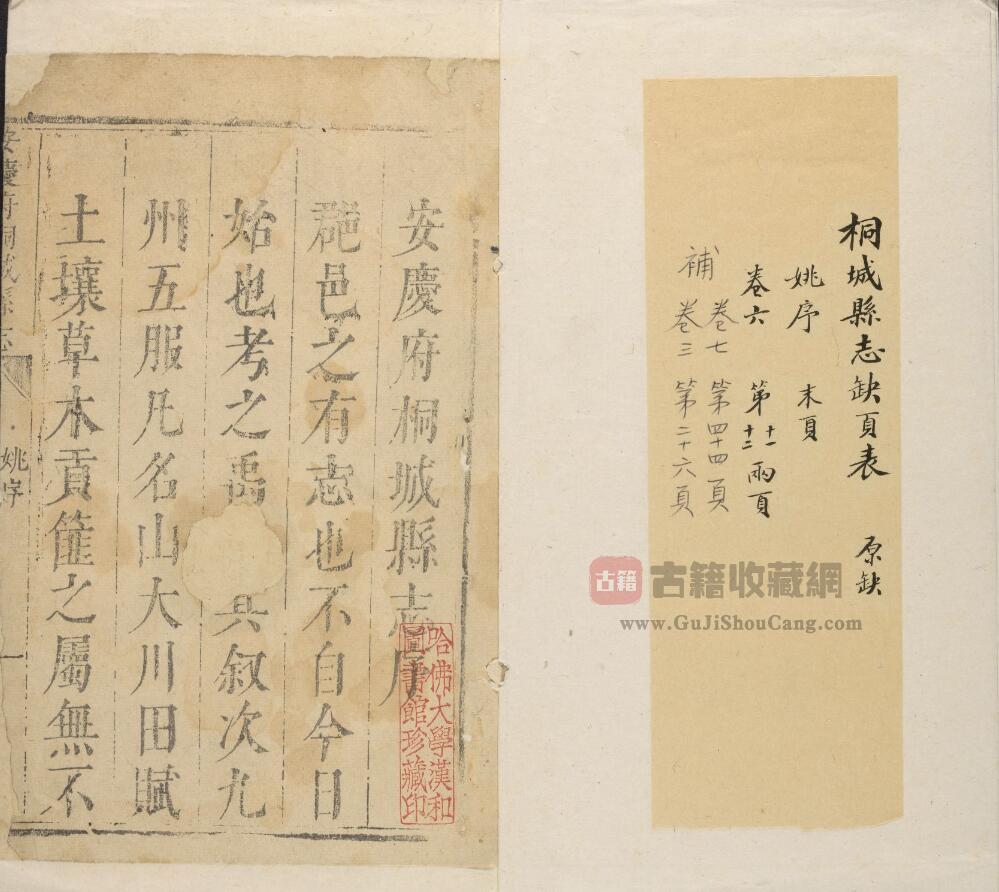 桐城縣志缺頁表 原缺
姚序 末頁
卷六 第十一十二兩頁
補 卷七 第四十四頁
卷三 第二十六頁
古籍 古籍收藏網
www.GuJiShouCang.com
安慶府桐城縣志序
郡邑之有志也不自今日
始也考之禹 其敘次九
州五服凡名山大川田賦
土壤草木貢篚之屬無不
安慶府桐城縣志 姚序 一
哈佛大學漢和
圖書館珍藏印